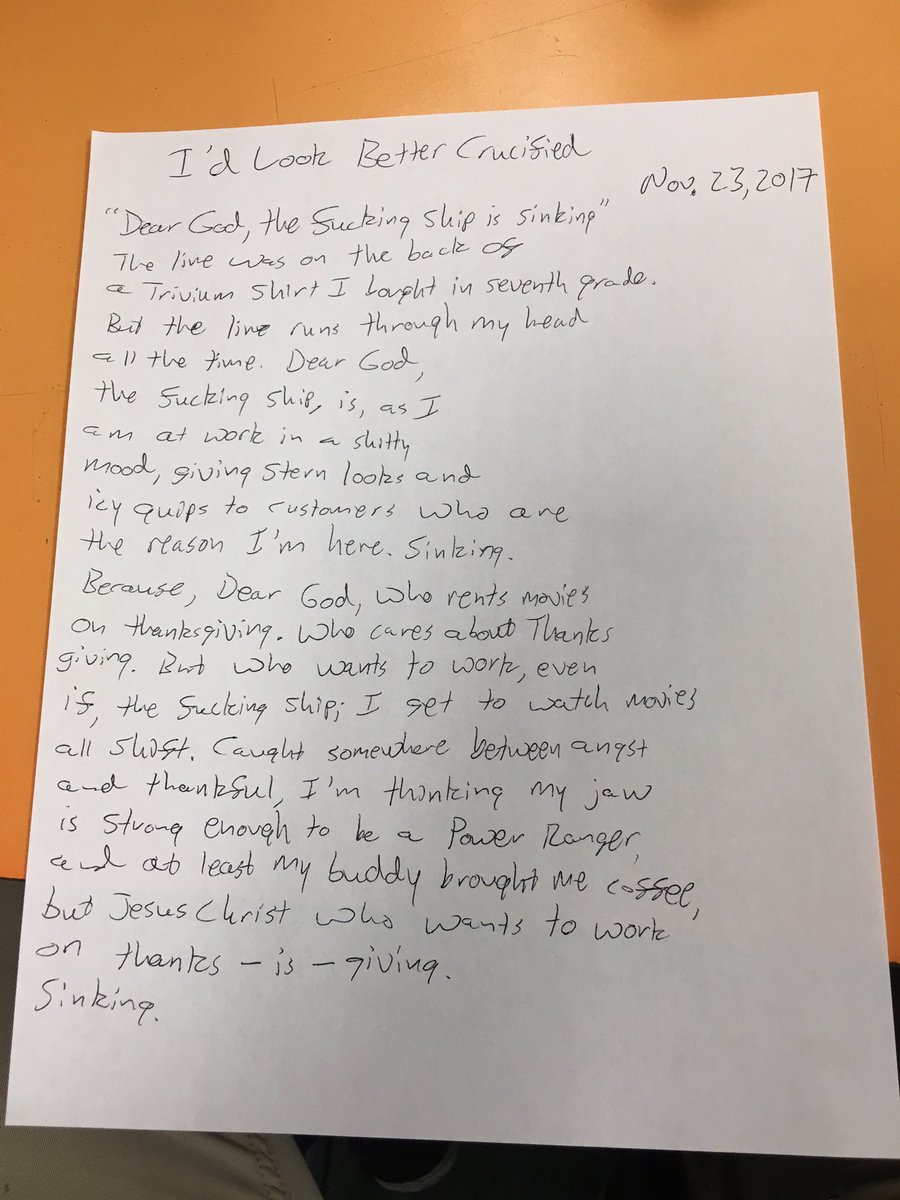 I'd Look Better Crucified
Nov. 23, 2017
"Dear God, the fucking ship is sinking"
The line was on the back of
a Trivium shirt I bought in seventh grade.
But the line runs through my head
all the time. Dear God,
the fucking ship, is, as I
am at work in a shitty
mood, giving stern looks and
icy quips to customers who are
the reason I'm here. Sinking.
Because, Dear God, who rents movies
on thanksgiving. Who cares about Thanks
giving. But who wants to work, even
if, the fucking ship; I get to watch movies
all shift. Caught somewhere between angst
and thankful, I'm thinking my jaw
is strong enough to be a Power Ranger,
and at least my buddy brought me coffee,
but Jesus Christ who wants to work
on thanks - is - giving.
Sinking.